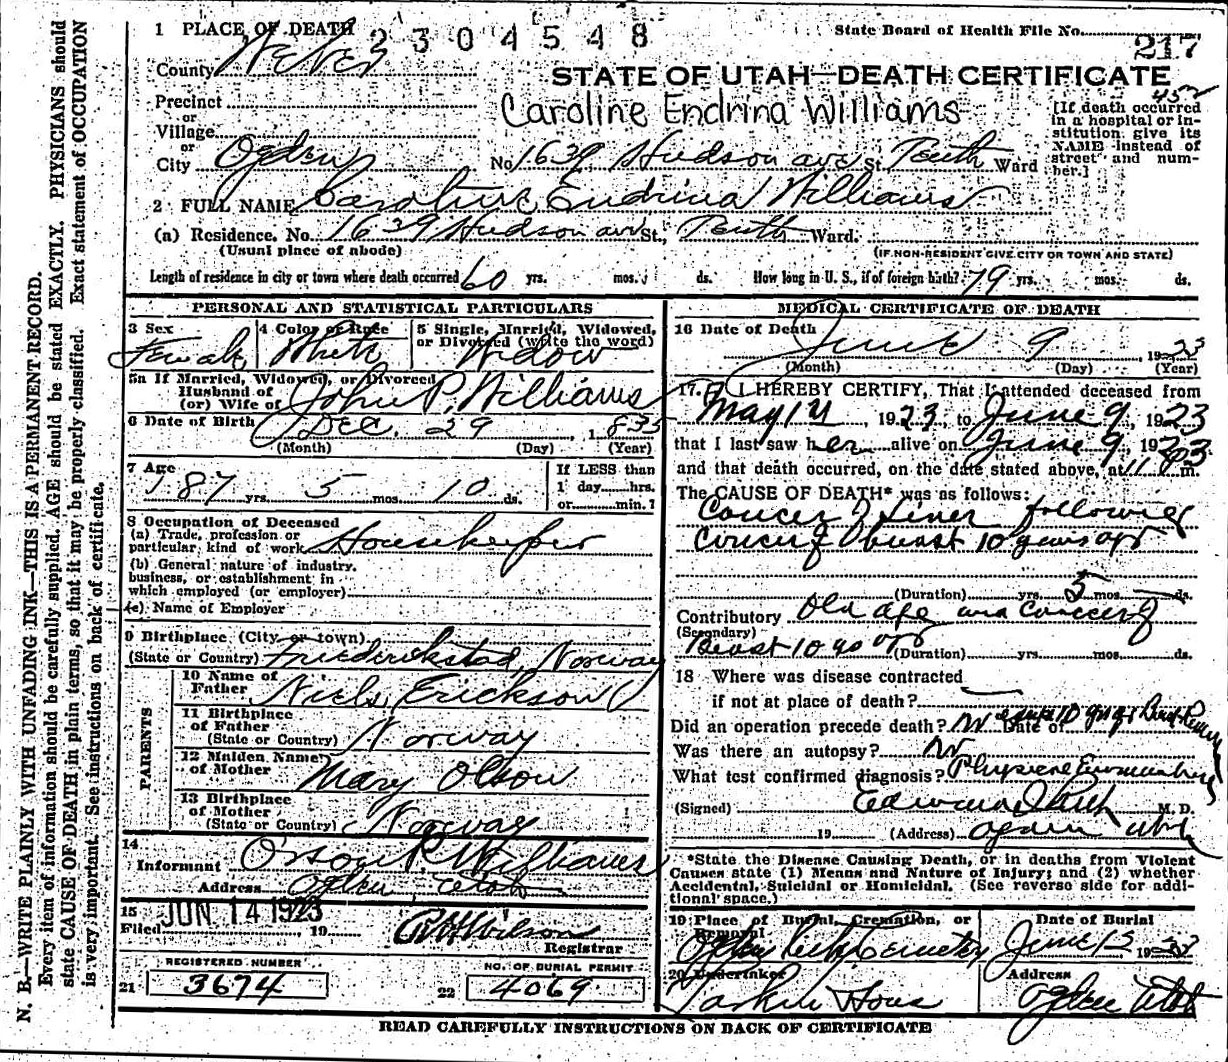 1 PLACE OF DEATH 2304548 State Board of Health File No. 217
County Weber
STATE OF UTAH—DEATH CERTIFICATE
452
Precinct
Caroline Endrina Williams
[If death occurred in a hospital or institution give its NAME instead of street and number.]
or
Village
or
City Ogden No. 1639 Hudson ave St. Ward
2 FULL NAME Caroline Endrina Williams
(a) Residence. No. 1639 Hudson ave St., Ward.
(Usual place of abode) (IF NON-RESIDENT GIVE CITY OR TOWN AND STATE)
Length of residence in city or town where death occurred 60 yrs. mos. ds. How long in U. S., if of foreign birth? 79 yrs. mos. ds.
PERSONAL AND STATISTICAL PARTICULARS
3 Sex Female
4 Color or Race White
5 Single, Married, Widowed, or Divorced (write the word) Widow
5a If Married, Widowed, or Divorced
Husband of
(or) Wife of John P. Williams
6 Date of Birth Dec. 29, 1835
(Month) (Day) (Year)
7 Age 87 yrs. 5 mos. 10 ds.
If LESS than
1 day hrs.
or min. ?
8 Occupation of Deceased
(a) Trade, profession or
particular kind of work Housekeeper
(b) General nature of industry,
business, or establishment in
which employed (or employer)
(c) Name of Employer
9 Birthplace (City or town)
(State or Country) Friederikstad, Norway
PARENTS
10 Name of
Father Niels Erickson
11 Birthplace
of Father
(State or Country) Norway
12 Maiden Name
of Mother Mary Olson
13 Birthplace
of Mother
(State or Country) Norway
14
Informant Orson P. Williams
Address Ogden Utah
15 JUN 14 1923
Filed 19 Wilson
Registrar
REGISTERED NUMBER NO. OF BURIAL PERMIT
21 3674 22 4069
MEDICAL CERTIFICATE OF DEATH
16 Date of Death June 9, 1923
(Month) (Day) (Year)
17. I HEREBY CERTIFY, That I attended deceased from
May 14 1923, to June 9, 1923
that I last saw her alive on June 9, 1923
and that death occurred, on the date stated above, at 11 m.
The CAUSE OF DEATH* was as follows:
Cancer of Liver following
Cancer of breast 10 years ago
(Duration) yrs. 5 mos. ds.
Contributory Old age and Cancer of
(Secondary) Breast 10 ago
(Duration) yrs. mos. ds.
18 Where was disease contracted
if not at place of death?
Did an operation precede death? Date of
Was there an autopsy? No
What test confirmed diagnosis?
(Signed) M. D.
19 (Address) Ogden Utah
*State the Disease Causing Death, or in deaths from Violent
Causes state (1) Means and Nature of Injury; and (2) whether
Accidental, Suicidal or Homicidal. (See reverse side for addi-
tional space.)
19 Place of Burial, Cremation, or
Removal
Ogden City Cemetery
Date of Burial
June 1923
20 Undertaker
Larkin
Address
Ogden Utah
READ CAREFULLY INSTRUCTIONS ON BACK OF CERTIFICATE
N. B.—WRITE PLAINLY WITH UNFADING INK—THIS IS A PERMANENT RECORD.
Every item of information should be carefully supplied. AGE should be stated EXACTLY. PHYSICIANS should
state CAUSE OF DEATH in plain terms, so that it may be properly classified. Exact statement of OCCUPATION
is very important. See instructions on back of certificate.